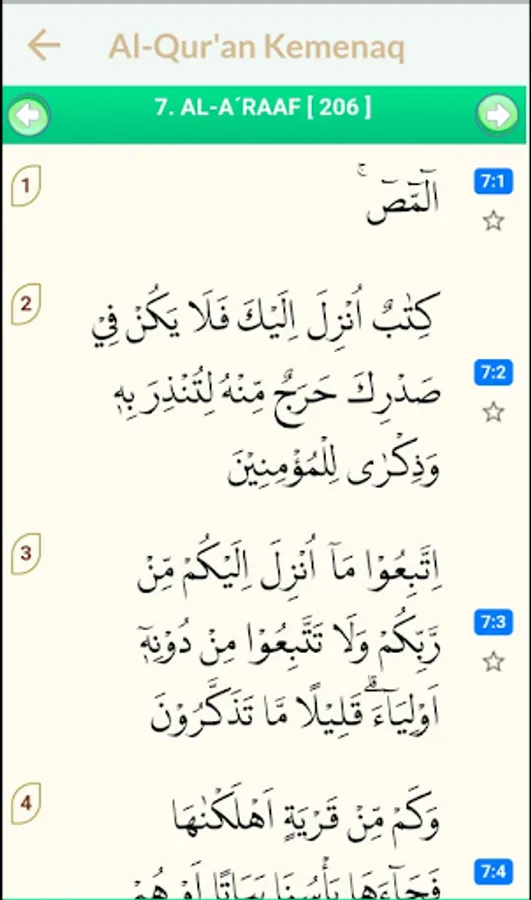 Al-Qur'an Kemenaq
7. AL-A´RAAF [ 206 ]
1
الۤمّۤصۤ ۚ
7:1
2
كِتٰبٌ اُنْزِلَ اِلَيْكَ فَلَا يَكُنْ فِيْ
صَدْرِكَ حَرَجٌ مِّنْهُ لِتُنْذِرَ بِهٖ
وَذِكْرٰى لِلْمُؤْمِنِيْنَ
7:2
3
اِتَّبِعُوْا مَآ اُنْزِلَ اِلَيْكُمْ مِّنْ
رَّبِّكُمْ وَلَا تَتَّبِعُوْا مِنْ دُوْنِهٖٓ
اَوْلِيَاۤءَۗ قَلِيْلًا مَّا تَذَكَّرُوْنَ
7:3
4
وَكَمْ مِّنْ قَرْيَةٍ اَهْلَكْنٰهَا
فَجَاۤءَهَا بَأْسُنَا بَيَاتًا اَوْ هُمْ
7:4